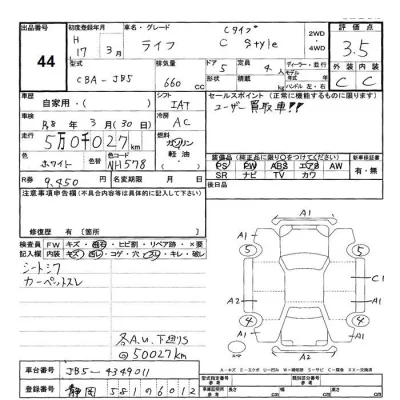 出品番号 初度登録年月 車名・グレード Cタイプ 2WD・4WD 評価点
44 H 17 3月 ライフ C Style 3.5
型式 排気量 ドア 定員 ディーラー・並行 外装 内装
CBA-JB5 660 cc 5 4人 モデル年式 年 形状 kg ハンドル 左・右 C C
車歴 シフト セールスポイント(正常に機能するものに限ります)
自家用・( ) IAT ユーザー買取車!!
車検 冷房
R8年 3月(30日) AC
走行 燃料
50027km ガソリン 軽油 ( )
色 色替 色コード 装備品(純正品に限り○をつけてください) 新車保証書
ホワイト NH578 PS PW ABS エアB AW 有・無
SR ナビ TV カワ
R券 名変期限 月 日 後日品
9,450
注意事項申告欄(不具合内容等は具体的に記入して下さい)
A1
A1 A1
5 5
修復歴 有 [箇所
検査員記入欄 FW キズ・飛石・ヒビ割・リペア跡・×要
内装 キズ・汚レ・コゲ・穴・スレ・キレ・破レ
シートシワ
カーペットスレ
C1
A2 A1
4 4
A1
各A.U.下廻りS
@50027km
A2
A…キズ E…エクボ U…凹ミ W…補修跡 S…サビ C…腐食 XX…交換済
車台番号 JB5-4349011
登録番号 静岡 581 の 6012
型式指定番号 類別区分番号
長さ cm 幅 cm 高さ cm